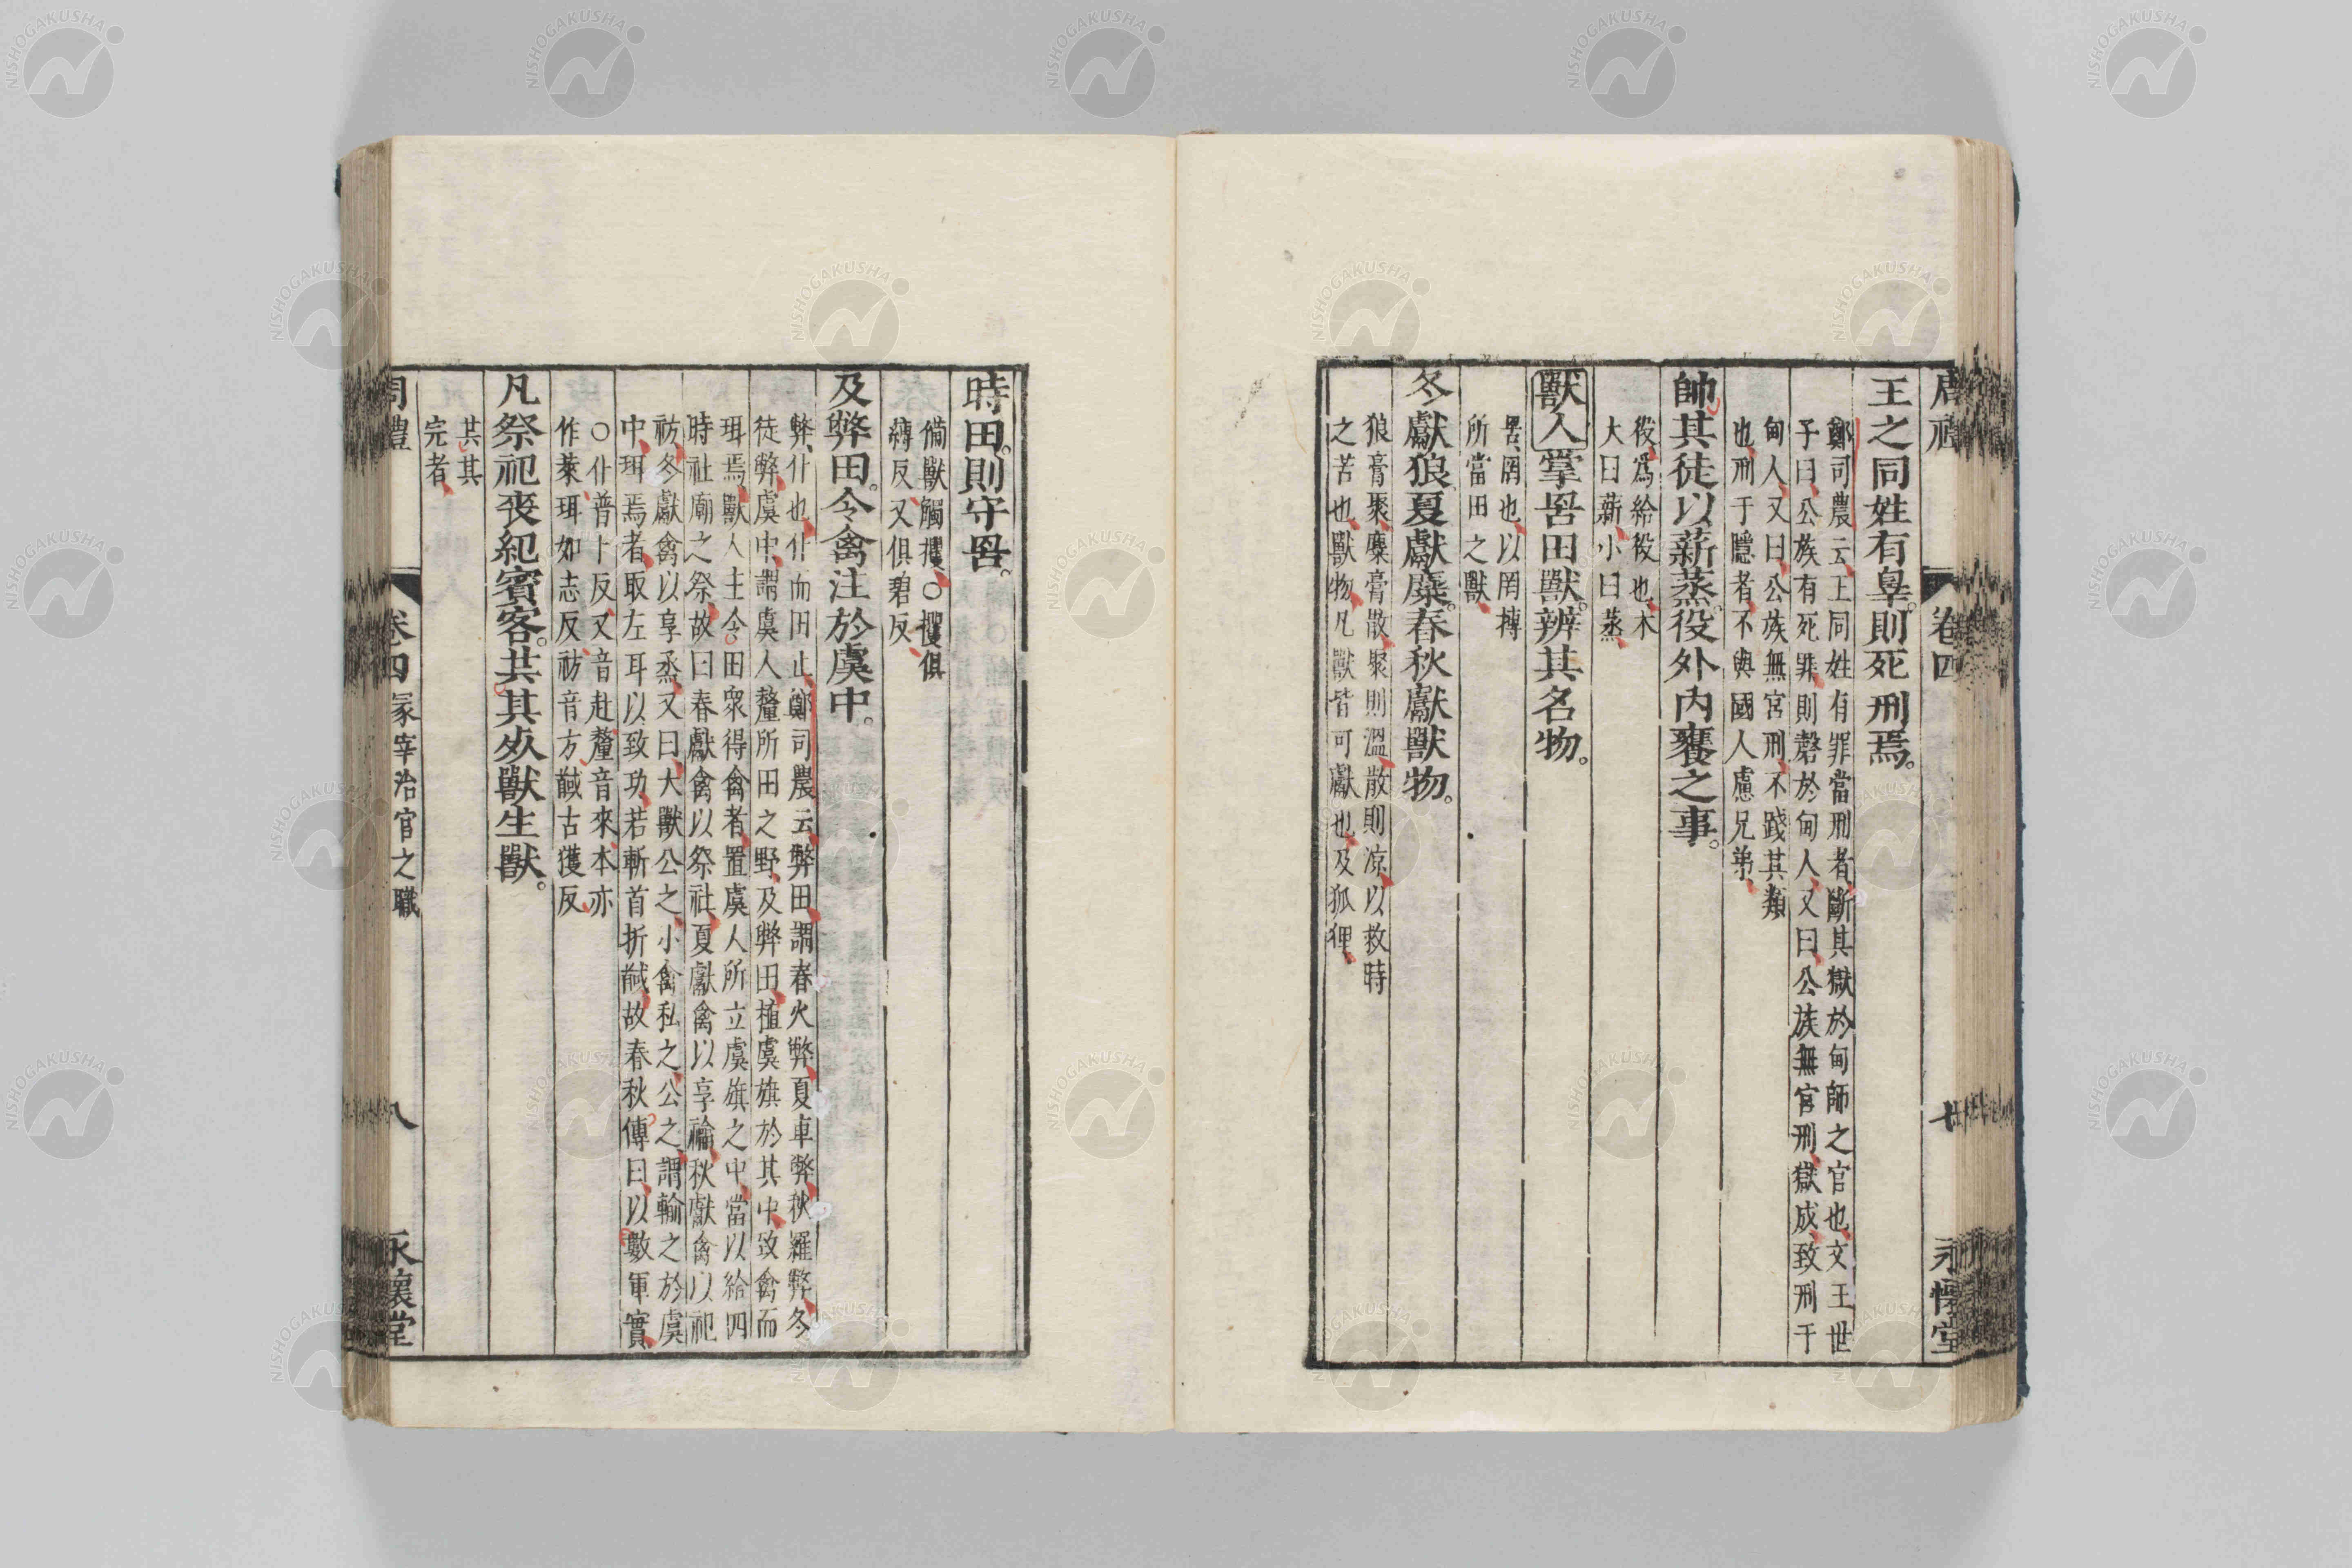 周禮 卷四 七 永懷堂
王之同姓有辠。則死刑焉。
鄭司農云、王同姓有罪當刑者、斷其獄於甸師之官也、文王世
子曰、公族有死罪、則磬於甸人、又曰、公族無宮刑、獄成、致刑于
甸人、又曰、公族無宮刑、不踐其類
也、刑于隱者、不與國人慮兄弟、
帥其徒以薪蒸。役外内饔之事。
役、爲給役也、木
大曰薪、小曰蒸、
獸人掌罟田獸。辨其名物。
罟、罔也、以罔搏
所當田之獸、
冬獻狼夏獻麋。春秋獻獸物。
狼膏聚、麋膏散、聚則溫、散則凉、以救時
之苦也、獸物、凡獸皆可獻也、及狐狸、
時田。則守罟。
備獸觸攫、○攫俱
縛反、又俱碧反、
及弊田。令禽注於虞中。
弊、仆也、仆而田止、鄭司農云、弊田、謂春火弊、夏車弊、秋羅弊、冬
徒弊、虞中、謂虞人釐所田之野、及弊田、植虞旗於其中、致禽而
珥焉、獸人主令田衆得禽者、置虞人所立虞旗之中、當以給四
時社廟之祭、故曰春獻禽以祭社、夏獻禽以享禴、秋獻禽以祀
祊、冬獻禽以享烝、又曰、大獸公之、小禽私之、公之、謂輸之於虞
中、珥焉者、取左耳以致功、若斬首折馘、故春秋傳曰、以數軍實、
○仆普卜反、又音赴、釐音來、本亦
作萊、珥如志反、祊音方、馘古獲反、
凡祭祀喪紀賓客。共其死獸生獸。
共其
完者、
周禮 卷四 冢宰治官之職 八 永懷堂
NISHOGAKUSHA